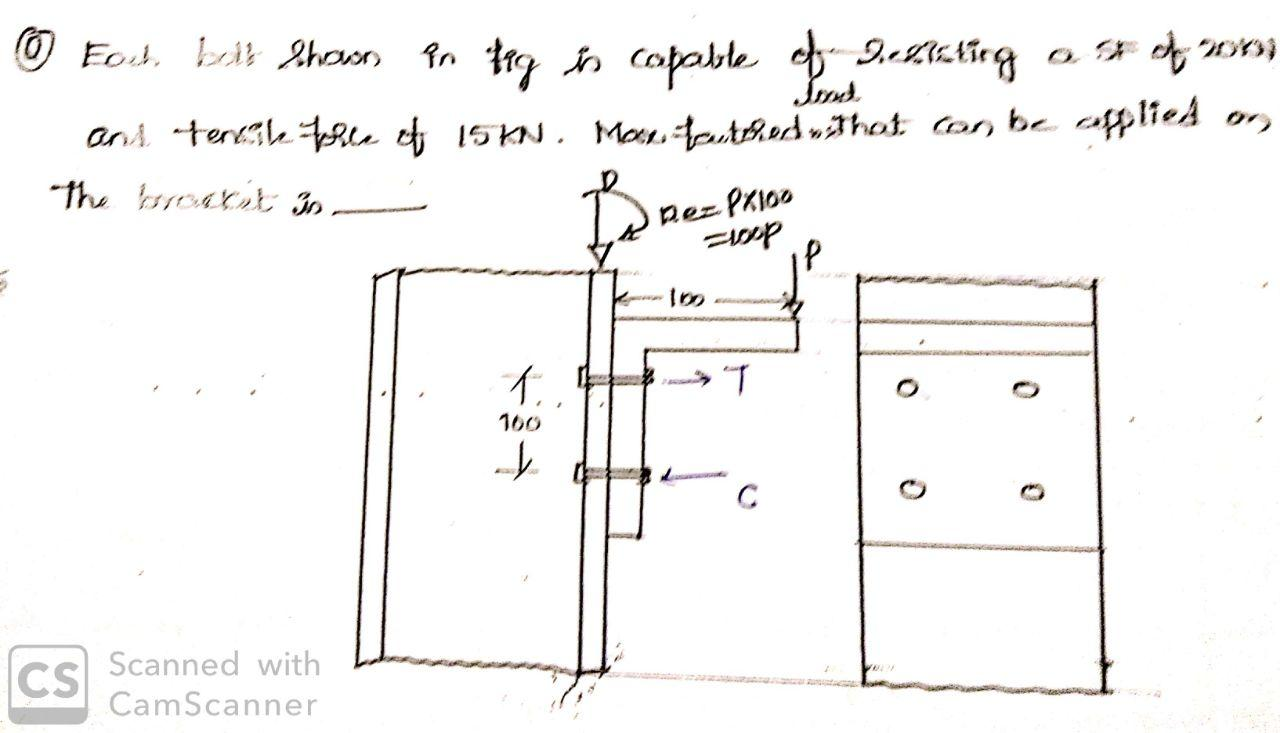 Each bolt shown in fig is capable of resisting a SF of 20KN
load
and tensile force of 15KN. Max. factored that can be applied on
The bracket is
P
Pe = PX100
=100P
P
100
T
100
C
CS Scanned with
CamScanner